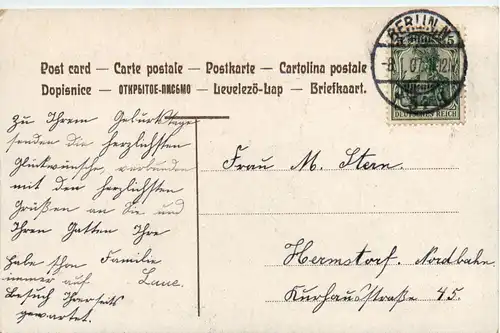 Post card — Carte postale — Postkarte — Cartolina postale
Dopisnice — ОТКРЫТОЕ-ПИСЬМО — Levelező-Lap — Briefkaart.
BERLIN N.
07
DEUTSCHES REICH
Zu Ihrem Geburtstage
senden die herzlichsten
Glückwünsche, verbunden
mit den herzlichsten
Grüßen an Sie und
Ihren Gatten Ihre
Familie
Laue.
Habe schon
immer auf
Besuch Ihrerseits
gewartet.
Frau M. Stern.
Hermstorf. Nordbahn.
Kurhausstraße 45.